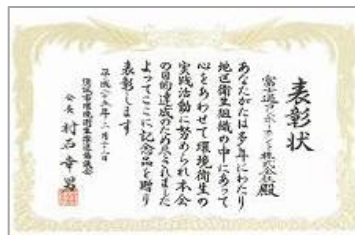 表彰状
富士通フロンテック株式会社殿
あなたがたは多年にわたり
地区衛生組織の中にあって
心をあわせて環境衛生の
実践活動に努められ本会
の目的達成のため尽されました
よってここに記念品を贈り
表彰します
平成二十五年二月十六日
環境衛生推進協議会
会長 村石幸男